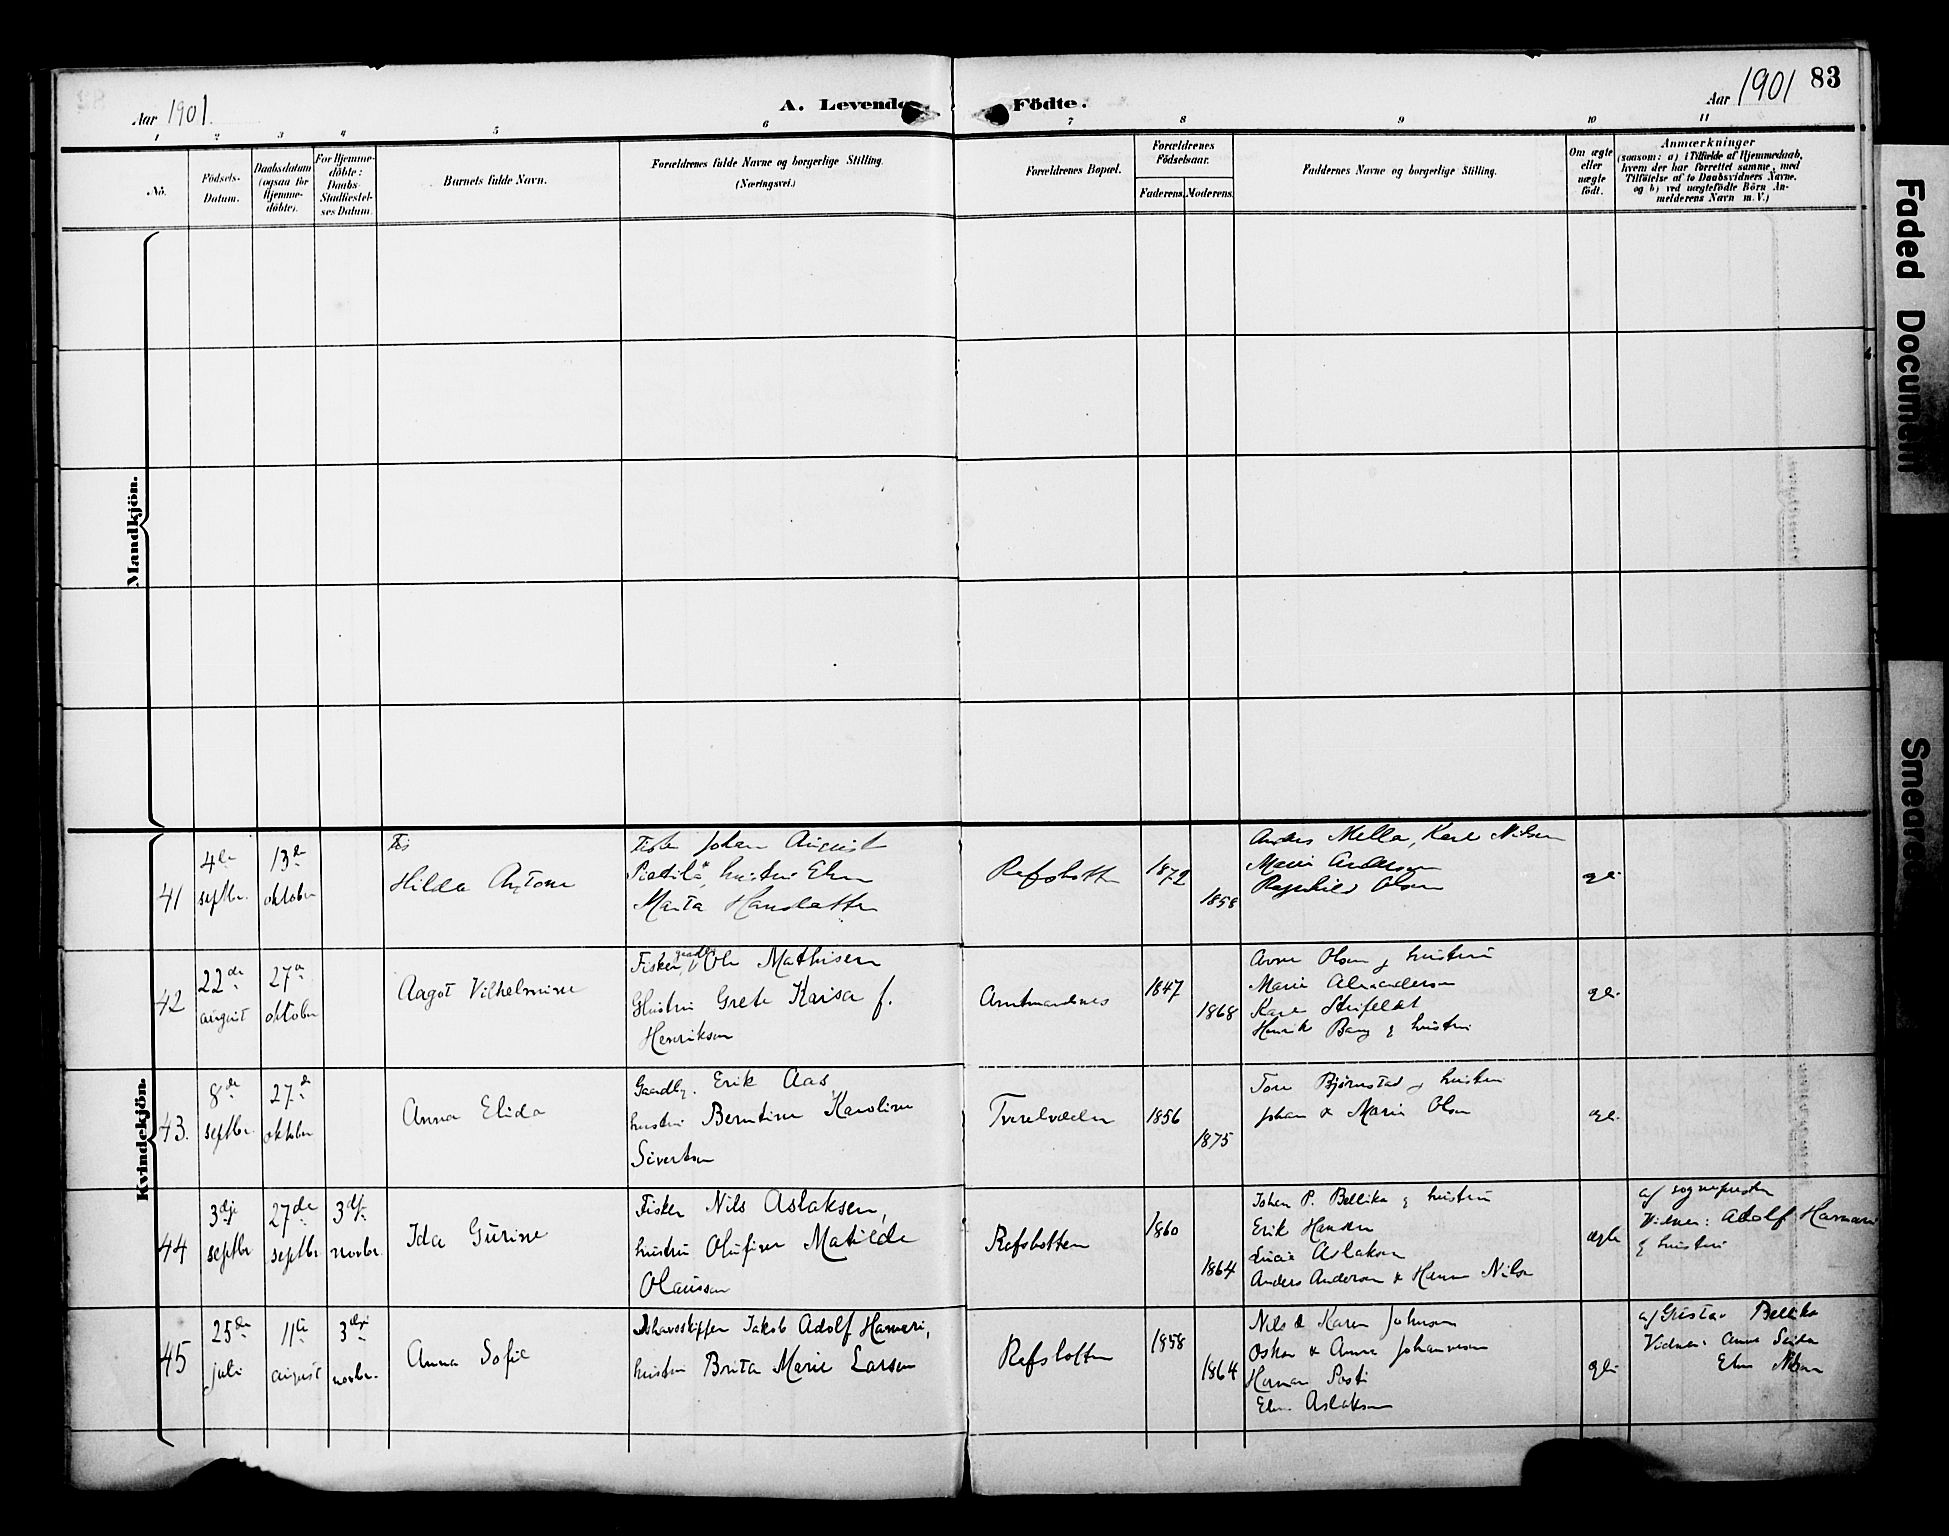 Aar 1901.
A. Levende Födte.
Aar 1901
83
1 2 3 4 5 6 7 8 9 10 11
No.
Födsels-
Datum.
Daabsdatum
(ogsaa för
Hjemme-
döbte).
For Hjemme-
döbte:
Daabs-
Stadfæstel-
ses Datum.
Barnets fulde Navn.
Forældrenes fulde Navne og borgerlige Stilling.
(Næringsvei.)
Forældrenes Bopæl.
Forældrenes
Födselsaar.
Faderens. Moderens.
Faddernes Navne og borgerlige Stilling.
Om ægte
eller
uægte
födt.
Anmærkninger
(saasom: a) i Tilfælde af Hjemmedaab,
hvem der har forrettet samme, med
Tilföielse af to Daabsvidners Navne,
og b) ved uægtefödte Börn An-
melderens Navn m.V.)
Mandkjön.
Kvindekjön.
41
4de
septbr.
13de
oktober
Hilda
Johan August
hustru Elen
Marta
Refsbotten
1872
1858
Anders Mella, Karl Nilsen
Marie Andersen
Ragnhild Olsen
42
22de
august
27de
oktober
Aagot Vilhelmine
Fisker, gaardbr Ole Mathisen
Hustru Grete Kaisa f.
Henriksen
Amtmandnes
1847
1868
Arne Olsen & hustru
Marie Alexandersen
Henrik Bang & hustru
43.
8de
septbr.
27de
oktober
Anna Elida
Gaardbr. Erik Aas,
hustru Berntine Karoline
Sivertsen
Tverelvdalen
1856
1875
Tore Bjørnstad & hustru
Johan & Marie Olsen
44
3dje
septbr
27de
septbr
3dje
novbr.
Ida Gurine
Fisker Nils Aslaksen,
hustru Olufine Matilde
Olaussen
Refsbotten
1860
1864
Johan P. Bellika & hustru
Erik Hansen
Lucie Aslaksen
Anders Andersen & Hanna Nilsen
ægte
af sognepresten
Vidner: Adolf Hameri
& hustru
45
25de
juli
11te
august
3dje
novbr.
Anna Sofie
Ishavsskipper Jakob Adolf Hameri,
hustru Brita Marie Larsen
Refsbotten
1858
1864
Nils & Karen Johnsen
Oskar & Anna Johannesen
Herman Posti
Elen Aslaksen
af Gustav Bellika
Vidner: Anna
Elen Nilsen
Faded Document
Smeared